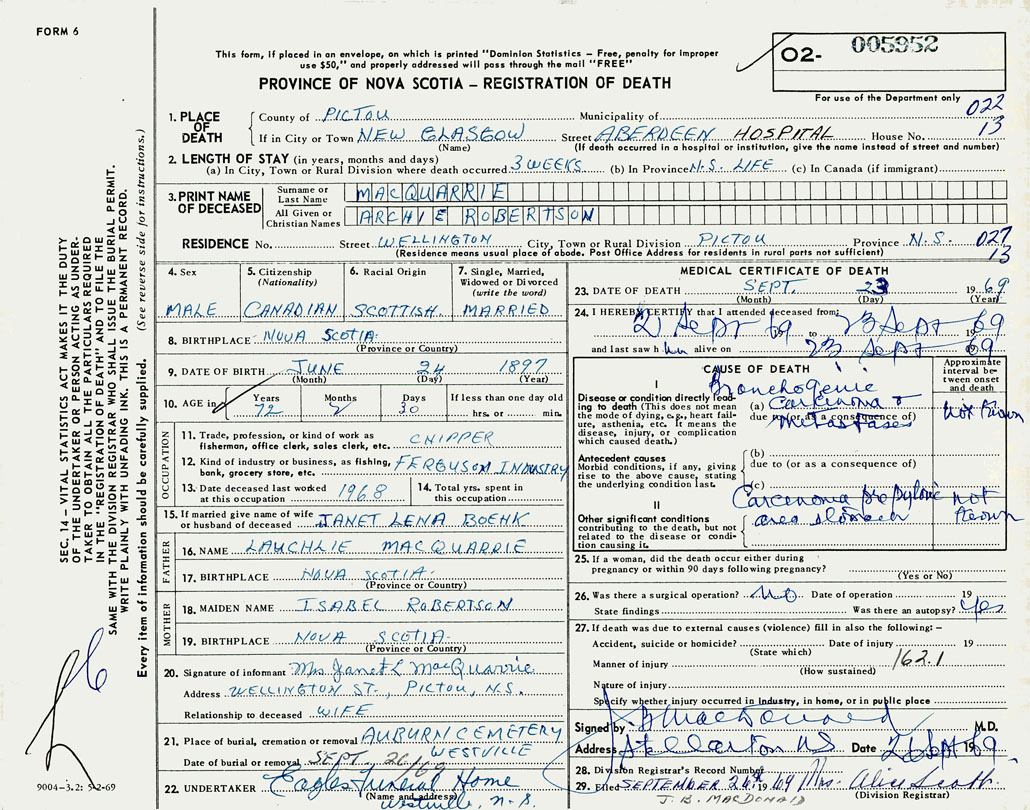 FORM 6
This form, if placed in an envelope, on which is printed "Dominion Statistics – Free, penalty for improper
use $50," and properly addressed will pass through the mail "FREE"
O2- 005952
PROVINCE OF NOVA SCOTIA – REGISTRATION OF DEATH
For use of the Department only
022
13
1. PLACE OF DEATH
County of PICTOU Municipality of
If in City or Town NEW GLASGOW Street ABERDEEN HOSPITAL House No.
(Name) (If death occurred in a hospital or institution, give the name instead of street and number)
2. LENGTH OF STAY (in years, months and days)
(a) In City, Town or Rural Division where death occurred 3 WEEKS (b) In Province N.S. LIFE (c) In Canada (if immigrant)
3. PRINT NAME OF DECEASED
Surname or Last Name MACQUARRIE
All Given or Christian Names ARCHIE ROBERTSON
RESIDENCE No. Street WELLINGTON City, Town or Rural Division PICTOU Province N.S. 027
13
(Residence means usual place of abode. Post Office Address for residents in rural parts not sufficient)
4. Sex MALE
5. Citizenship (Nationality) CANADIAN
6. Racial Origin SCOTTISH
7. Single, Married, Widowed or Divorced (write the word) MARRIED
8. BIRTHPLACE NOVA SCOTIA
(Province or Country)
9. DATE OF BIRTH JUNE 24 1897
(Month) (Day) (Year)
10. AGE in Years Months Days If less than one day old
72 2 30 hrs. or min.
OCCUPATION
11. Trade, profession, or kind of work as
fisherman, office clerk, sales clerk, etc. CHIPPER
12. Kind of industry or business, as fishing,
bank, grocery store, etc. FERGUSON INDUSTRY
13. Date deceased last worked
at this occupation 1968
14. Total yrs. spent in
this occupation
15. If married give name of wife
or husband of deceased JANET LENA BOEHK
FATHER
16. NAME LAUCHLIE MACQUARRIE
17. BIRTHPLACE NOVA SCOTIA
(Province or Country)
MOTHER
18. MAIDEN NAME ISABEL ROBERTSON
19. BIRTHPLACE NOVA SCOTIA
(Province or Country)
20. Signature of informant Mrs Janet L MacQuarrie
Address WELLINGTON ST., PICTOU, N.S.
Relationship to deceased WIFE
21. Place of burial, cremation or removal AUBURN CEMETERY
WESTVILLE
Date of burial or removal SEPT. 26/69
22. UNDERTAKER Eagles Funeral Home
(Name and address)
Westville, N.S.
MEDICAL CERTIFICATE OF DEATH
23. DATE OF DEATH SEPT. 23 1969
(Month) (Day) (Year)
24. I HEREBY CERTIFY that I attended deceased from:
2 Sept 69 to 23 Sept 1969
and last saw him alive on 23 Sept 1969
CAUSE OF DEATH
Approximate interval between onset and death
I
Disease or condition directly leading to death (This does not mean the mode of dying, e.g., heart failure, asthenia, etc. It means the disease, injury, or complication which caused death.)
Bronchogenic
(a) Carcinoma
due to (or as a consequence of)
metastases
not known
Antecedent causes
Morbid conditions, if any, giving rise to the above cause, stating the underlying condition last.
(b)
due to (or as a consequence of)
(c)
II
Other significant conditions
contributing to the death, but not related to the disease or condition causing it.
Carcinoma prepyloric
area stomach
not known
25. If a woman, did the death occur either during
pregnancy or within 90 days following pregnancy?
(Yes or No)
26. Was there a surgical operation? No Date of operation 19
State findings Was there an autopsy? Yes
27. If death was due to external causes (violence) fill in also the following: –
Accident, suicide or homicide? Date of injury 19
(State which)
Manner of injury 162.1
(How sustained)
Nature of injury
Specify whether injury occurred in industry, in home, or in public place
Signed by J B MacDonald M.D.
Address Stellarton NS Date Sept 1969
28. Division Registrar's Record Number
29. Filed SEPTEMBER 24th 1969 Mrs. Alice Scott
(Division Registrar)
J. B. MACDONALD
SEC. 14 – VITAL STATISTICS ACT MAKES IT THE DUTY
OF THE UNDERTAKER OR PERSON ACTING AS UNDER-
TAKER TO OBTAIN ALL THE PARTICULARS REQUIRED
IN THE "REGISTRATION OF DEATH" AND TO FILE THE
SAME WITH THE DIVISION REGISTRAR WHO SHALL ISSUE THE BURIAL PERMIT.
WRITE PLAINLY WITH UNFADING INK. THIS IS A PERMANENT RECORD.
Every item of information should be carefully supplied. (See reverse side for instructions.)
9004-3.2: 5-2-69